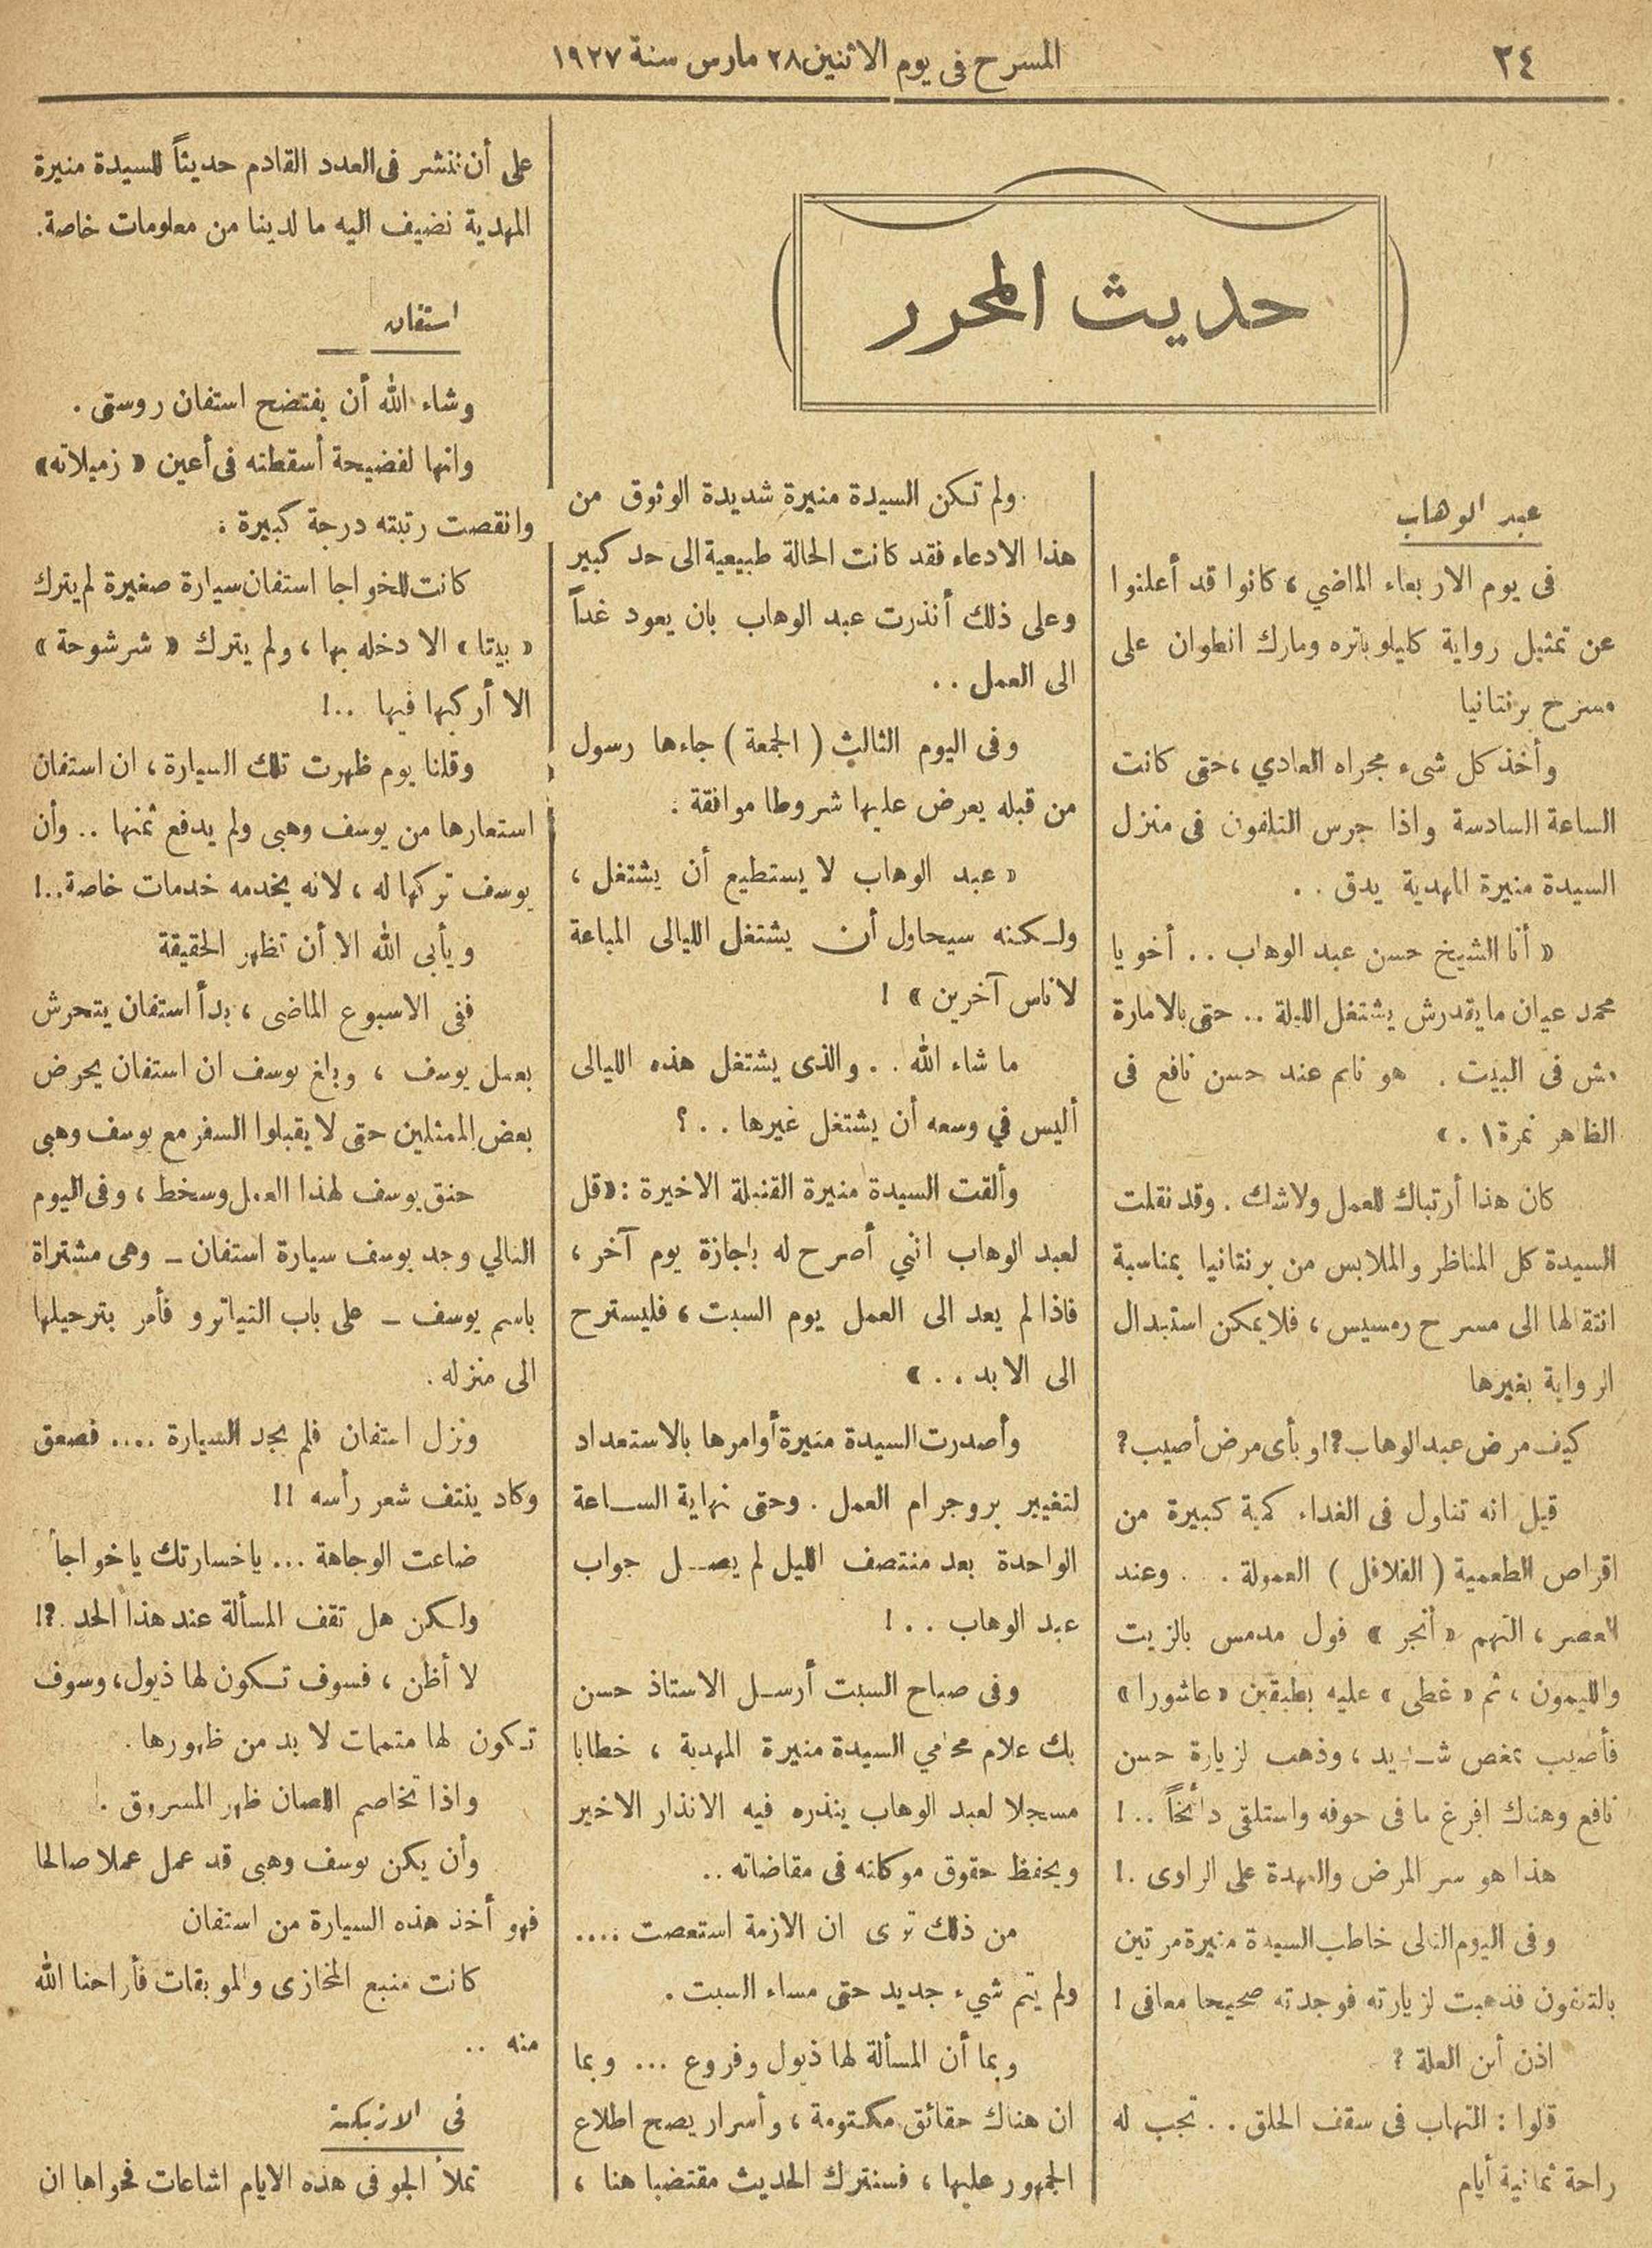 ٢٤
المسرح فى يوم الاثنين ٢٨ مارس سنة ١٩٢٧
حديث المحرر
عبد الوهاب
فى يوم الاربعاء الماضي ، كانوا قد أعلنوا
عن تمثيل رواية كليلوباتره ومارك انطوان على
مسرح برنتانيا
وأخذ كل شىء مجراه العادي ، حتى كانت
الساعة السادسة واذا جرس التلفون فى منزل
السيدة منيرة المهدية يدق . .
« أنا الشيخ حسن عبد الوهاب . . أخويا
محمد عيان مايقدرش يشتغل الليلة .. حتى بالامارة
مش فى البيت . هو نايم عند حسن نافع فى
الظاهر نمرة ١ . »
كان هذا أرتباك للعمل ولاشك . وقد نقلت
السيدة كل المناظر والملابس من برنتانيا بمناسبة
انتقالها الى مسرح رمسيس ، فلا يمكن استبدال
الرواية بغيرها
كيف مرض عبد الوهاب ? او بأى مرض أصيب ?
قيل انه تناول فى الغداء كمية كبيرة من
اقراص الطعمية ( الفلافل ) العمولة . . وعند
العصر ، التهم « أنجر » فول مدمس بالزيت
والليمون ، ثم « غطى » عليه بطبقين « عاشورا »
فأصيب بمغص شديد ، وذهب لزيارة حسن
نافع وهناك افرغ ما فى جوفه واستلقى دائخاً .. !
هذا هو سر المرض والعهدة على الراوى . !
وفى اليوم التالى خاطب السيدة منيرة مرتين
بالتلفون فذهبت لزيارته فوجدته صحيحا معافى !
اذن أين العلة ?
قالوا : التهاب فى سقف الحلق . . تجب له
راحة ثمانية أيام
ولم تكن السيدة منيرة شديدة الوثوق من
هذا الادعاء فقد كانت الحالة طبيعية الى حد كبير
وعلى ذلك أنذرت عبد الوهاب بان يعود غداً
الى العمل . .
وفى اليوم الثالث ( الجمعة ) جاءها رسول
من قبله يعرض عليها شروطا موافقة :
« عبد الوهاب لا يستطيع أن يشتغل ،
ولكنه سيحاول أن يشتغل الليالى المباعة
لاناس آخرين » !
ما شاء الله . . والذى يشتغل هذه الليالى
أليس في وسعه أن يشتغل غيرها . . ؟
وألقت السيدة منيرة القنبلة الاخيرة : « قل
لعبد الوهاب انني أصرح له باجازة يوم آخر ،
فاذا لم يعد الى العمل يوم السبت ، فليسترح
الى الابد . . »
وأصدرت السيدة منيرة أوامرها بالاستعداد
لتغيير بروجرام العمل . وحتى نهاية الساعة
الواحدة بعد منتصف الليل لم يصل جواب
عبد الوهاب . . !
وفى صباح السبت أرسل الاستاذ حسن
بك علام محامي السيدة منيرة المهدية ، خطابا
مسجلا لعبد الوهاب ينذره فيه الانذار الاخير
ويحفظ حقوق موكلته فى مقاضاته ..
من ذلك ترى ان الازمة استعصت ....
ولم يتم شيء جديد حتى مساء السبت .
وبما أن المسألة لها ذيول وفروع ... وبما
ان هناك حقائق مكتومة ، وأسرار يصح اطلاع
الجمهور عليها ، فسنترك الحديث مقتضبا هنا ،
على أن ننشر فى العدد القادم حديثاً للسيدة منيرة
المهدية نضيف اليه ما لدينا من معلومات خاصة .
استفان
وشاء الله أن يفتضح استفان روستى .
وانها لفضيحة أسقطته فى أعين « زميلاته »
وانقصت رتبته درجة كبيرة :
كانت للخواجا استفان سيارة صغيرة لم يترك
« بيتا » الا دخله بها ، ولم يترك « شرشوحة »
الا أركبها فيها ..!
وقلنا يوم ظهرت تلك السيارة ، ان استفان
استعارها من يوسف وهبى ولم يدفع ثمنها .. وأن
يوسف تركها له ، لانه يخدمه خدمات خاصة ..!
ويأبى الله الا أن تظهر الحقيقة
ففى الاسبوع الماضى ، بدأ استفان يتحرش
بعمل يوسف ، وبلغ يوسف ان استفان يحرض
بعض الممثلين حتى لا يقبلوا السفر مع يوسف وهبى
حنق يوسف لهذا العمل وسخط ، وفى اليوم
التالي وجد يوسف سيارة استفان – وهى مشتراة
باسم يوسف – على باب التياترو فأمر بترحيلها
الى منزله .
ونزل استفان فلم يجد السيارة .... فصعق
وكاد ينتف شعر رأسه !!
ضاعت الوجاهة ... ياخسارتك ياخواجا
ولكن هل تقف المسألة عند هذا الحد . ?!
لا أظن ، فسوف تكون لها ذيول ، وسوف
تكون لها متممات لا بد من ظهورها .
واذا تخاصم اللصان ظهر المسروق .
وأن يكن يوسف وهبى قد عمل عملا صالحا
فهو أخذ هذه السيارة من استفان
كانت منبع المخازى والموبقات فأراحنا الله
منه ..
فى الازبكية
تملأ الجو فى هذه الايام اشاعات فحواها ان